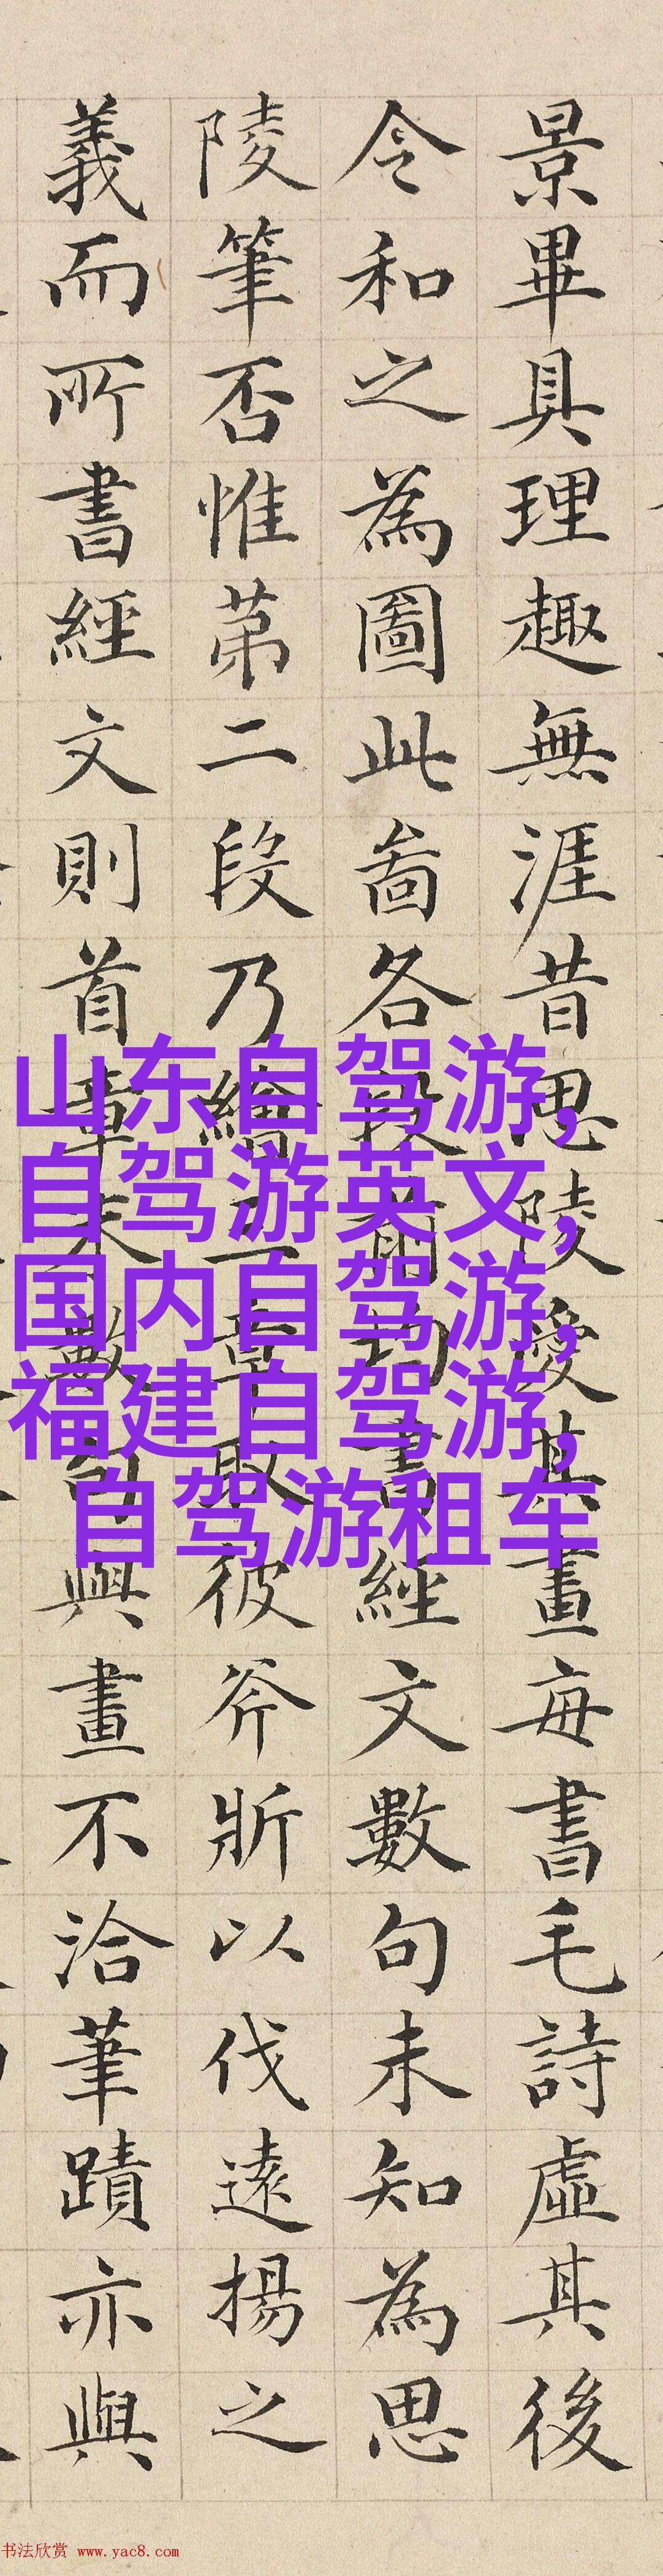 景畢具理趣無涯昔思陵愛其畫每書毛詩虛其後
令和之為圖此啚各段前均書經文數句未知為思
陵筆否惟苐二段乃繪章取彼斧斨以伐遠揚之
義而所書經文則首章末數句與畫不洽筆蹟亦與
山东自驾游,
自驾游英文,
国内自驾游,
福建自驾游,
自驾游租车
书法欣赏 www.yac8.com